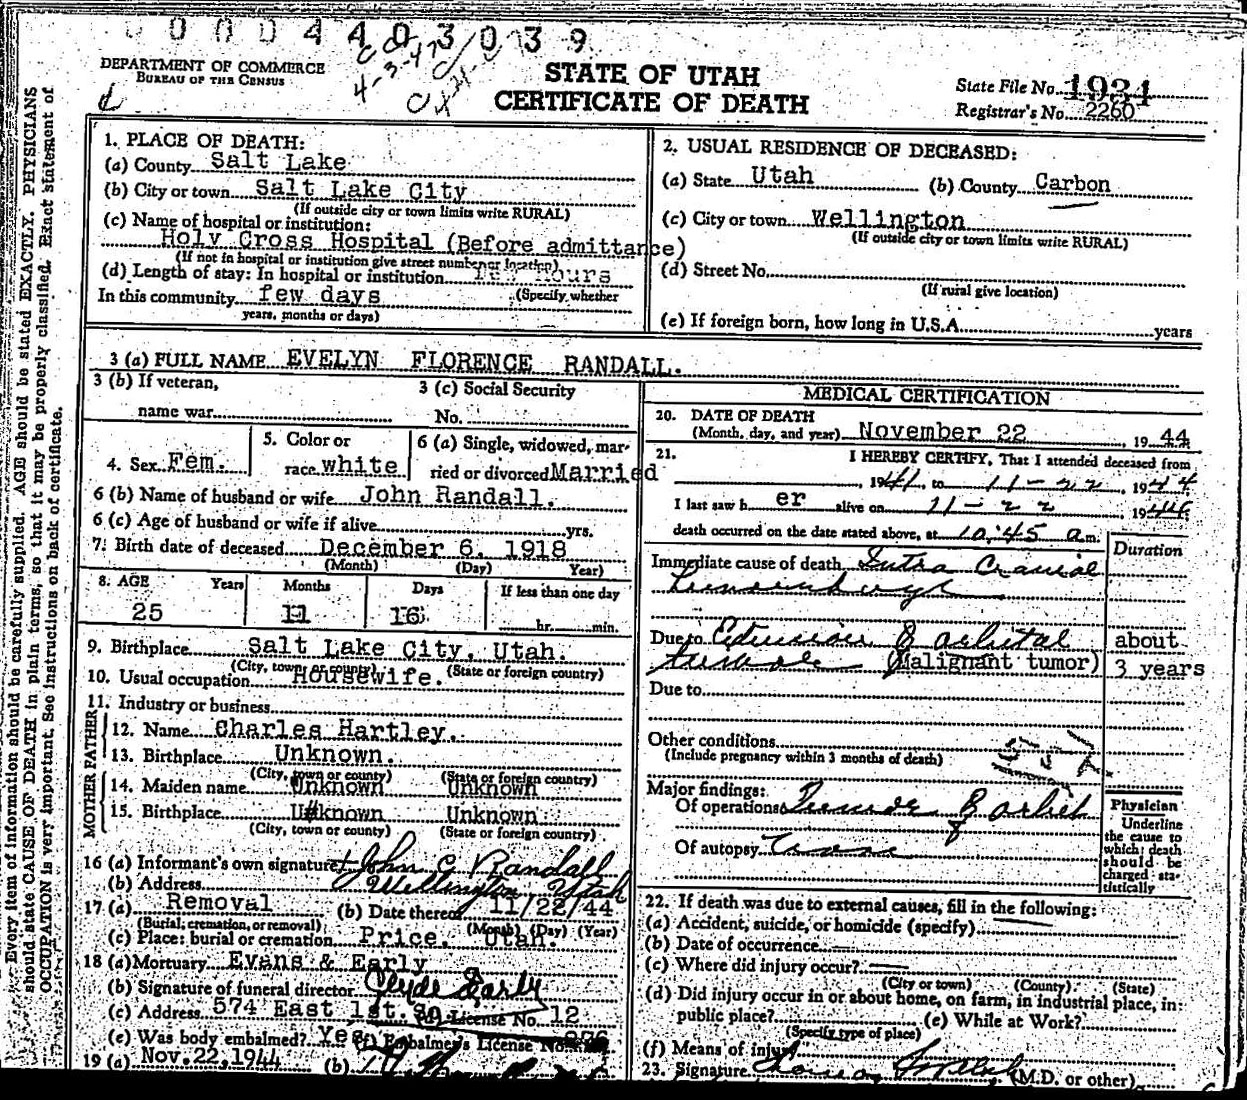 0 0 0 0 4 4 0 3 0 3 9
4-3-47
DEPARTMENT OF COMMERCE
BUREAU OF THE CENSUS
STATE OF UTAH
CERTIFICATE OF DEATH
State File No. 1934
Registrar's No. 2260
Every item of information should be carefully supplied. AGE should be stated EXACTLY. PHYSICIANS
should state CAUSE OF DEATH in plain terms, so that it may be properly classified. Exact statement of
OCCUPATION is very important. See instructions on back of certificate.
1. PLACE OF DEATH:
(a) County Salt Lake
(b) City or town Salt Lake City
(If outside city or town limits write RURAL)
(c) Name of hospital or institution:
Holy Cross Hospital (Before admittance)
(If not in hospital or institution give street number or location)
(d) Length of stay: In hospital or institution hours
In this community few days (Specify whether
years, months or days)
2. USUAL RESIDENCE OF DECEASED:
(a) State Utah (b) County Carbon
(c) City or town Wellington
(If outside city or town limits write RURAL)
(d) Street No.
(If rural give location)
(e) If foreign born, how long in U.S.A. years
3 (a) FULL NAME EVELYN FLORENCE RANDALL.
3 (b) If veteran,
name war
3 (c) Social Security
No.
4. Sex Fem.
5. Color or
race white
6 (a) Single, widowed, mar-
ried or divorced Married
6 (b) Name of husband or wife John Randall.
6 (c) Age of husband or wife if alive yrs.
7. Birth date of deceased December 6, 1918
(Month) (Day) Year)
8. AGE Years Months Days If less than one day
25 11 16 hr. min.
9. Birthplace Salt Lake City, Utah.
(City, town or county) (State or foreign country)
10. Usual occupation Housewife.
11. Industry or business
FATHER
12. Name Charles Hartley.
13. Birthplace Unknown.
(City, town or county) (State or foreign country)
MOTHER
14. Maiden name Unknown Unknown
15. Birthplace Unknown Unknown
(City, town or county) (State or foreign country)
16 (a) Informant's own signature John C Randall
(b) Address Wellington Utah
17 (a) Removal (b) Date thereof 11/22/44
(Burial, cremation, or removal) (Month) (Day) (Year)
(c) Place: burial or cremation Price, Utah.
18 (a) Mortuary Evans & Early
(b) Signature of funeral director Clyde Early
(c) Address 574 East 1st. So License No. 12
(e) Was body embalmed? Yes (f) Embalmer's License No.
19 (a) Nov. 22, 1944 (b)
MEDICAL CERTIFICATION
20. DATE OF DEATH
(Month, day, and year) November 22 1944
21. I HEREBY CERTIFY, That I attended deceased from
1941, to 11-22, 1944
I last saw her alive on 11-22 1944
death occurred on the date stated above, at 10:45 a.m.
Duration
Immediate cause of death Intra Cranial
Hemorrhage
Due to Extension of orbital
tumor (Malignant tumor)
about
3 years
Due to
Other conditions
(Include pregnancy within 3 months of death)
Major findings:
Of operations Tumor of orbit
Of autopsy None
Physician
Underline
the cause to
which death
should be
charged sta-
tistically
22. If death was due to external causes, fill in the following:
(a) Accident, suicide, or homicide (specify)
(b) Date of occurrence
(c) Where did injury occur?
(City or town) (County) (State)
(d) Did injury occur in or about home, on farm, in industrial place, in
public place? (e) While at Work?
(Specify type of place)
(f) Means of injury
23. Signature (M.D. or other)